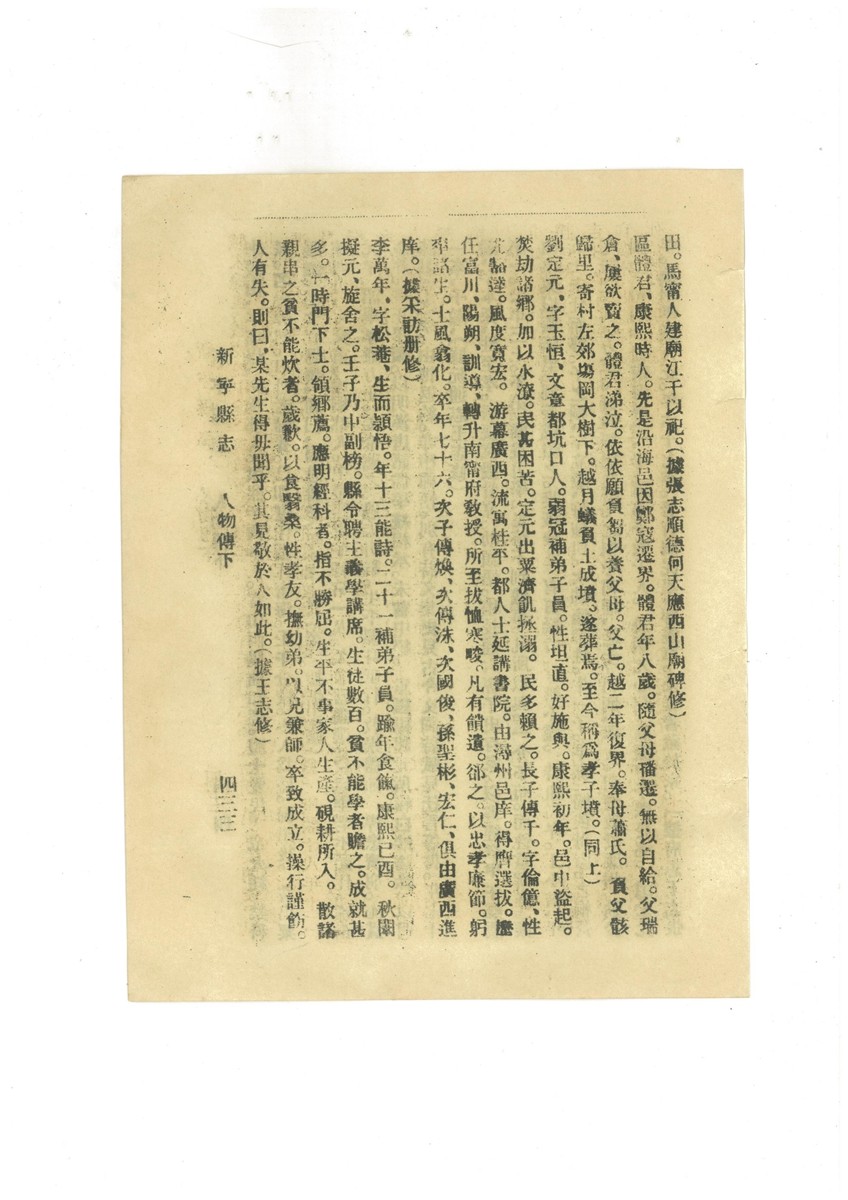 田。馬甯人建廟江干以祀。（據張志順德何天應西山廟碑修）
區體君、康熙時人。先是沿海邑因鄭寇遷界。體君年八歲。隨父母播遷。無以自給。父瑞
倉、屢欲賣之。體君涕泣。依依願負芻以養父母。父亡。越二年復界。奉母蕭氏。負父骸
歸里。寄村左郊塲岡大樹下。越月蟻負土成墳、遂葬焉。至今稱爲孝子墳。（同上）
劉定元、字玉恒、文章都坑口人。弱冠補弟子員。性坦直。好施與。康熙初年。邑中盜起。
焚劫諸鄉。加以水潦。民甚困苦。定元出粟濟飢拯溺。民多賴之。長子傳千。字倫億、性
尤豁達。風度寬宏。游幕廣西。流寓桂平。都人士延講書院。由潯州邑庠。得膺選拔。歷
任富川、陽朔、訓導、轉升南甯府教授。所至拔恤寒畯。凡有饋遺。郤之。以忠孝廉節。躬
率諸生。士風翕化。卒年七十六。次子傳煥、次傳沫、次國俊、孫聖彬、宏仁、俱由廣西進
庠。（據采訪册修）
李萬年、字松菴、生而穎悟。年十三能詩。二十一補弟子員。踰年食餼。康熙己酉。秋闈
擬元、旋舍之。壬子乃中副榜。縣令聘主義學講席。生徒數百。貧不能學者贍之。成就甚
多。一時門下士。領鄉薦。應明經科者。指不勝屈。生平不事家人生產。硯耕所入。散諸
親串之貧不能炊者。歲歉。以食翳桑。性孝友。撫幼弟。以兄兼師。卒致成立。操行謹飭。
人有失。則曰、某先生得毋聞乎。其見敬於人如此。（據王志修）
新寧縣志 人物傳下 四三三